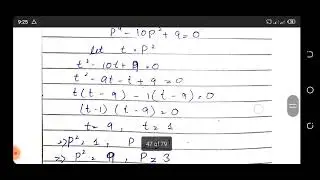 9:25
P⁴ - 10P² + 9 = 0
let t = P²
t² - 10t + 9 = 0
t² - 9t - t + 9 = 0
t(t - 9) - 1(t - 9) = 0
(t-1) (t - 9) = 0
t = 9, t = 1
P² = 1, P
47 of 79
=> P² = 9, P = 3